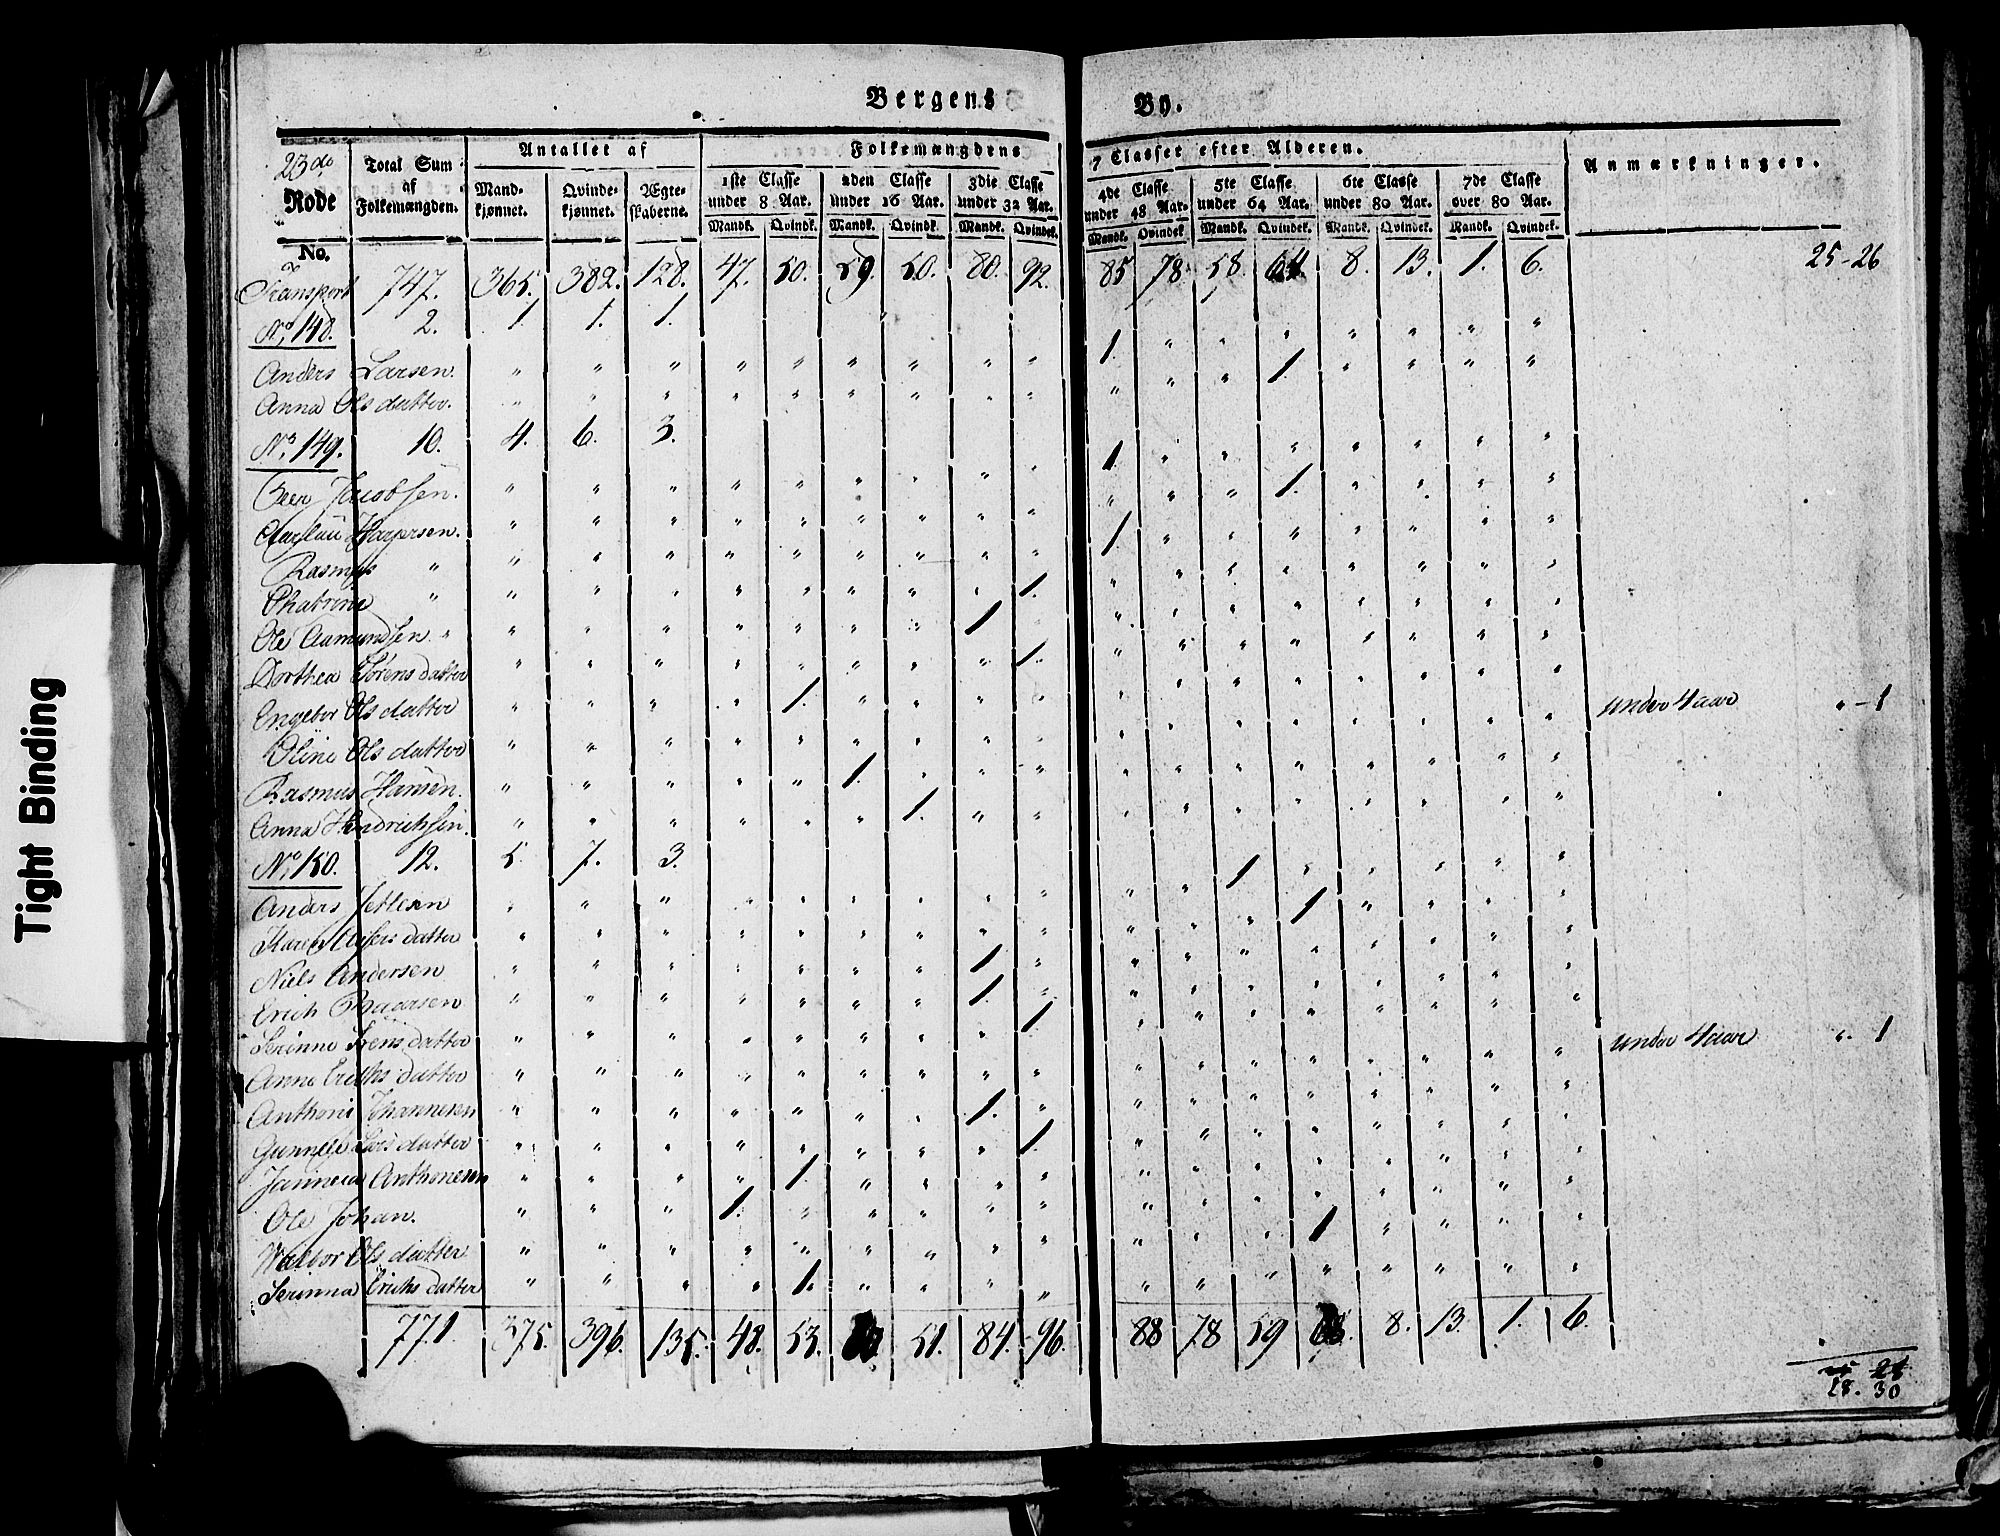 Tight Binding
Bergens By.
23de Rode No.
Total Sum af Folkemængden.
Antallet af
Mandkjønnet. Qvindekjønnet. Ægteskaberne.
Folkemængdens 7 Classer efter Alderen.
1ste Classe under 8 Aar. 2den Classe under 16 Aar. 3die Classe under 32 Aar. 4de Classe under 48 Aar. 5te Classe under 64 Aar. 6te Classe under 80 Aar. 7de Classe over 80 Aar.
Mandk. Qvindk. Mandk. Qvindk. Mandk. Qvindek. Mandk. Qvindek. Mandk. Qvindek. Mandk. Qvindek. Mandk. Qvindek.
Anmærkninger.
Transport 747. 365. 382. 128. 47. 50. 59. 50. 80. 92. 85 78 58 64 8. 13. 1. 6. 25-26
No. 148. 2. 1. 1. 1.
Anders Larsen. " " " " " " " " " 1. " " " " " " "
Anna Olsdatter. " " " " " " " " " " " " 1. " " " "
No. 149. 10. 4. 6. 3.
Peer Jacobsen. " " " " " " " " 1. " " " " " " "
Hagersen. " " " " " " " " " " " " 1. " " " "
Rasmus " " " " " " " " " " 1. " " " " " " "
Chatrine " " " " " " " " " 1.
Ole Aamundsen " " " " " " " " 1.
Dorthea Sørensdatter " " " " " " " " 1.
Engebor Olsdatter " " " " 1. " " " " under 4 aar " - 1
Oline Olsdatter " " " " " " " " "
Rasmus Hansen. " " " " " 1. " " "
Anna Hendrichsen. " " " " " " 1. " "
No. 150. 12. 5. 7. 3.
Anders Jetlesen " " " " " " " " " " " 1 " " " " "
Karen datter " " " " " " " " " " " " 1 " " " "
Niels Andersen " " " " " " " 1. "
Erich Baarsen " " " " " " " 1. "
Serinne datter " " " " " " " " 1
Anne Erichsdatter " " " " " " " " " under 4 aar " 1
Anthoni Johannesen " " " " " " " 1. "
Gunnele Larsdatter " " " " " " " " 1.
Anthonesen " " " " 1. " " " "
Ole Johan. " " " 1. " " " " "
Walbor Olsdatter " " " " " " " " " " " " 1 " " " "
Serinna Erichsdatter " " " " 1. " " " "
771. 375. 396. 135. 48. 53. 51. 84. 96. 88 78 59 8. 13. 1. 6.
28. 30